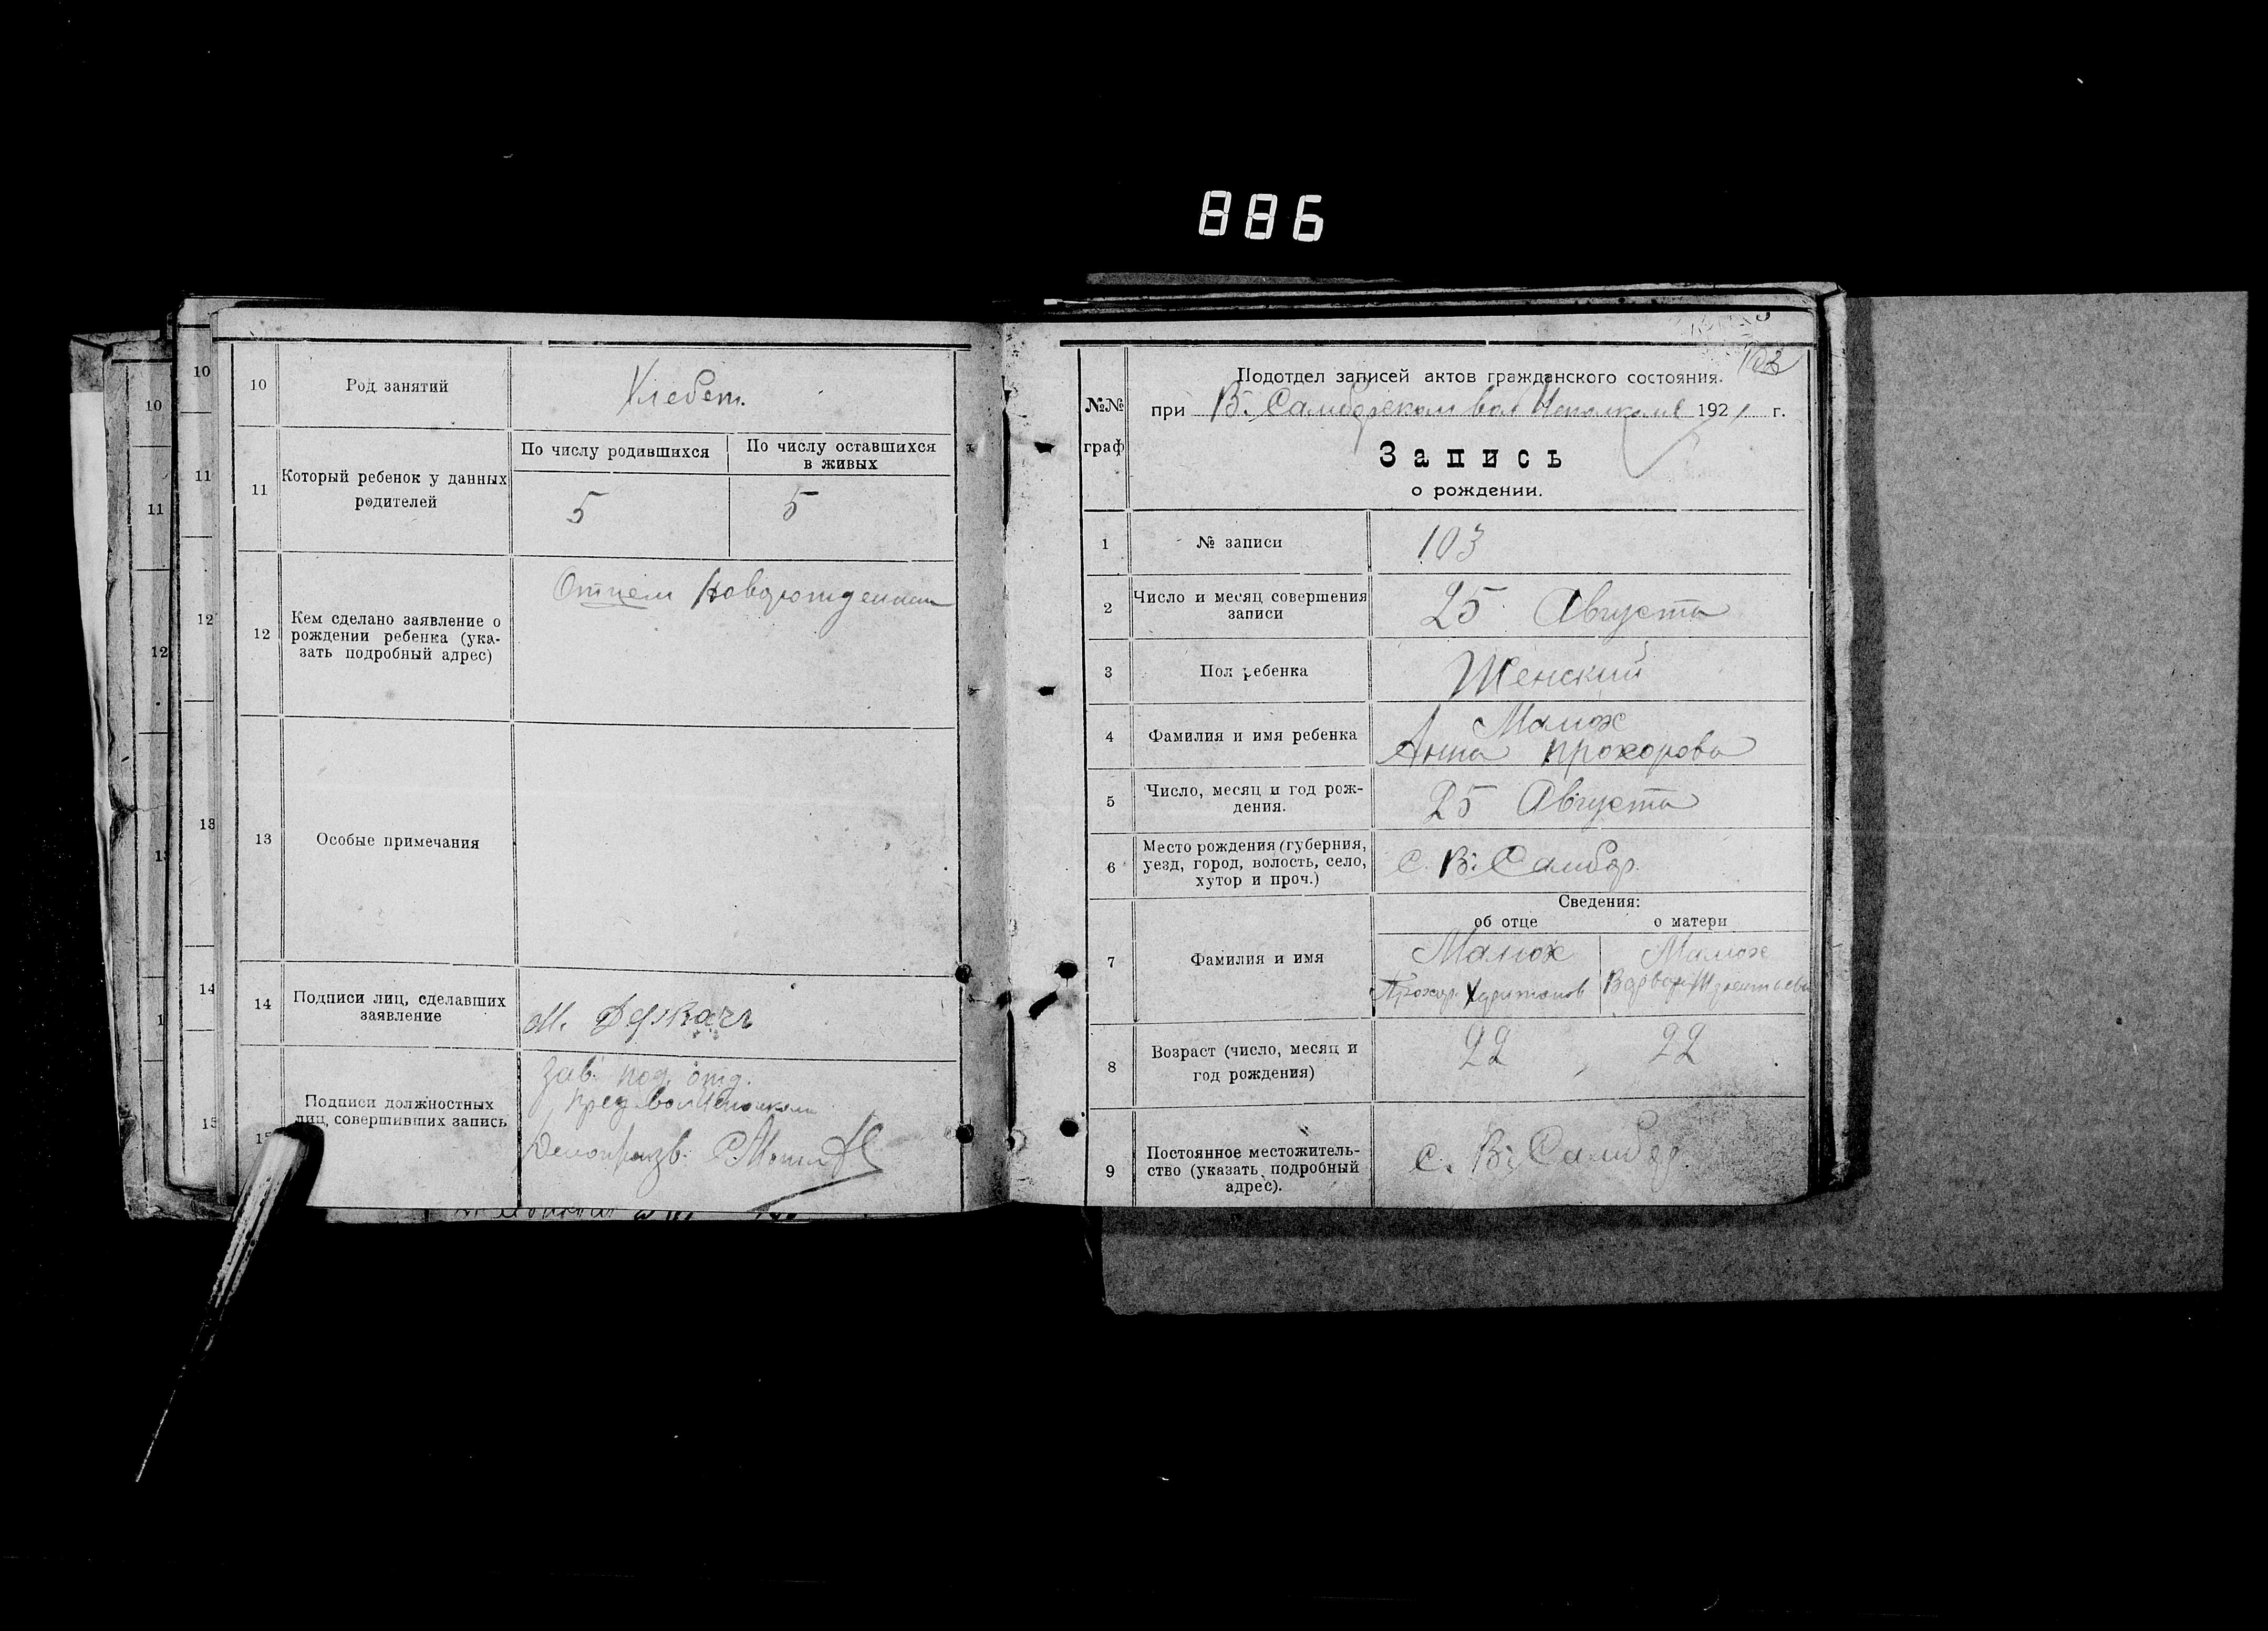 886
10
Род занятий
Хлебоп.
11
Который ребенок у данных
родителей
По числу родившихся
По числу оставшихся
в живых
5
5
12
Кем сделано заявление о
рождении ребенка (ука-
зать подробный адрес)
Отцем
13
Особые примечания
14
Подписи лиц, сделавших
заявление
М.
15
Подписи должностных
лиц, совершивших запись
Зав. под. отд.
Делопроизв.
10
11
12
13
14
15
10
11
12
№№
граф
Подотдел записей актов гражданского состояния.
при В. Самборском вол Исполкоме 1921 г.
Запись
о рождении.
1
№ записи
103
2
Число и месяц совершения
записи
25 Августа
3
Пол ребенка
Женский
4
Фамилия и имя ребенка
Малюх
Анна Прохорова
5
Число, месяц и год рож-
дения.
25 Августа
6
Место рождения (губерния,
уезд, город, волость, село,
хутор и проч.)
С. В. Самбор.
Сведения:
об отце
о матери
7
Фамилия и имя
Малюх
Прохор Харитонов
Малюх
8
Возраст (число, месяц и
год рождения)
22
22
9
Постоянное местожитель-
ство (указать подробный
адрес).
С. В. Самбор.